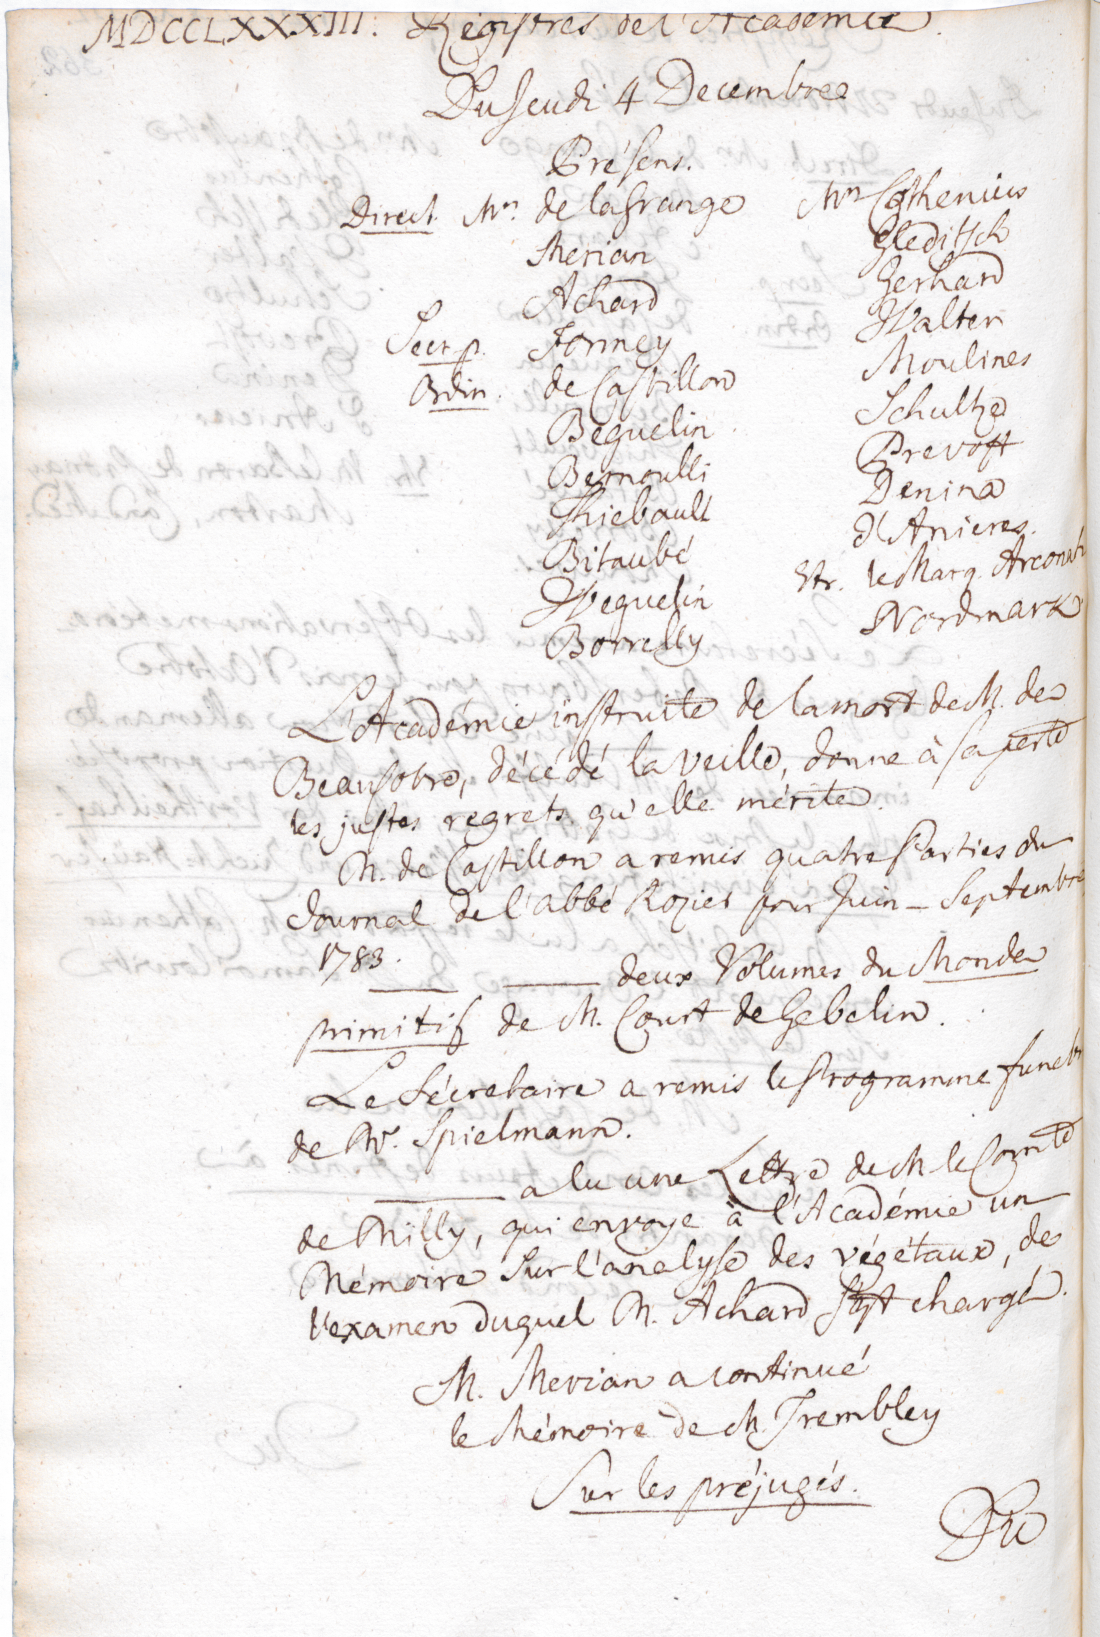 MDCCLXXXIII. Régistres de l'Académie.
Du Jeudi 4 Decembre
Présens.
Direct. Mrs. de la Grange
Merian
Achard
Secr. p. Formey
Ordin. de Castillon
Beguelin
Bernoulli
Thiebault
Bitaubé
Weguelin
Borrelly
Mrs Cothenius
Gleditsch
Gerhard
Walter
Moulines
Schultze
Prevost
Denina
d'Anieres.
Etr. le Marq. Arconati
Nordmark
L'Académie instruite de la mort de M. de
Beausobre, décédé la veille, donne à sa perte
les justes regrets qu'elle mérite.
M. de Castillon a remis quatre Parties du
Journal de l'abbé Rozier pour Juin - Septembre
1783.
— — deux Volumes du Monde
primitif de M. Court de Gebelin.
Le Sécretaire a remis le Programme funebr
de Mr. Spielmann.
— a lu une Lettre de M. le Comte
de Milly, qui envoye à l'Académie un
Mémoire sur l'analyse des végétaux, de
l'examen duquel M. Achard s'est chargé.
M. Merian a continué
le Mémoire de M. Trembley
Sur les préjugés.
Du